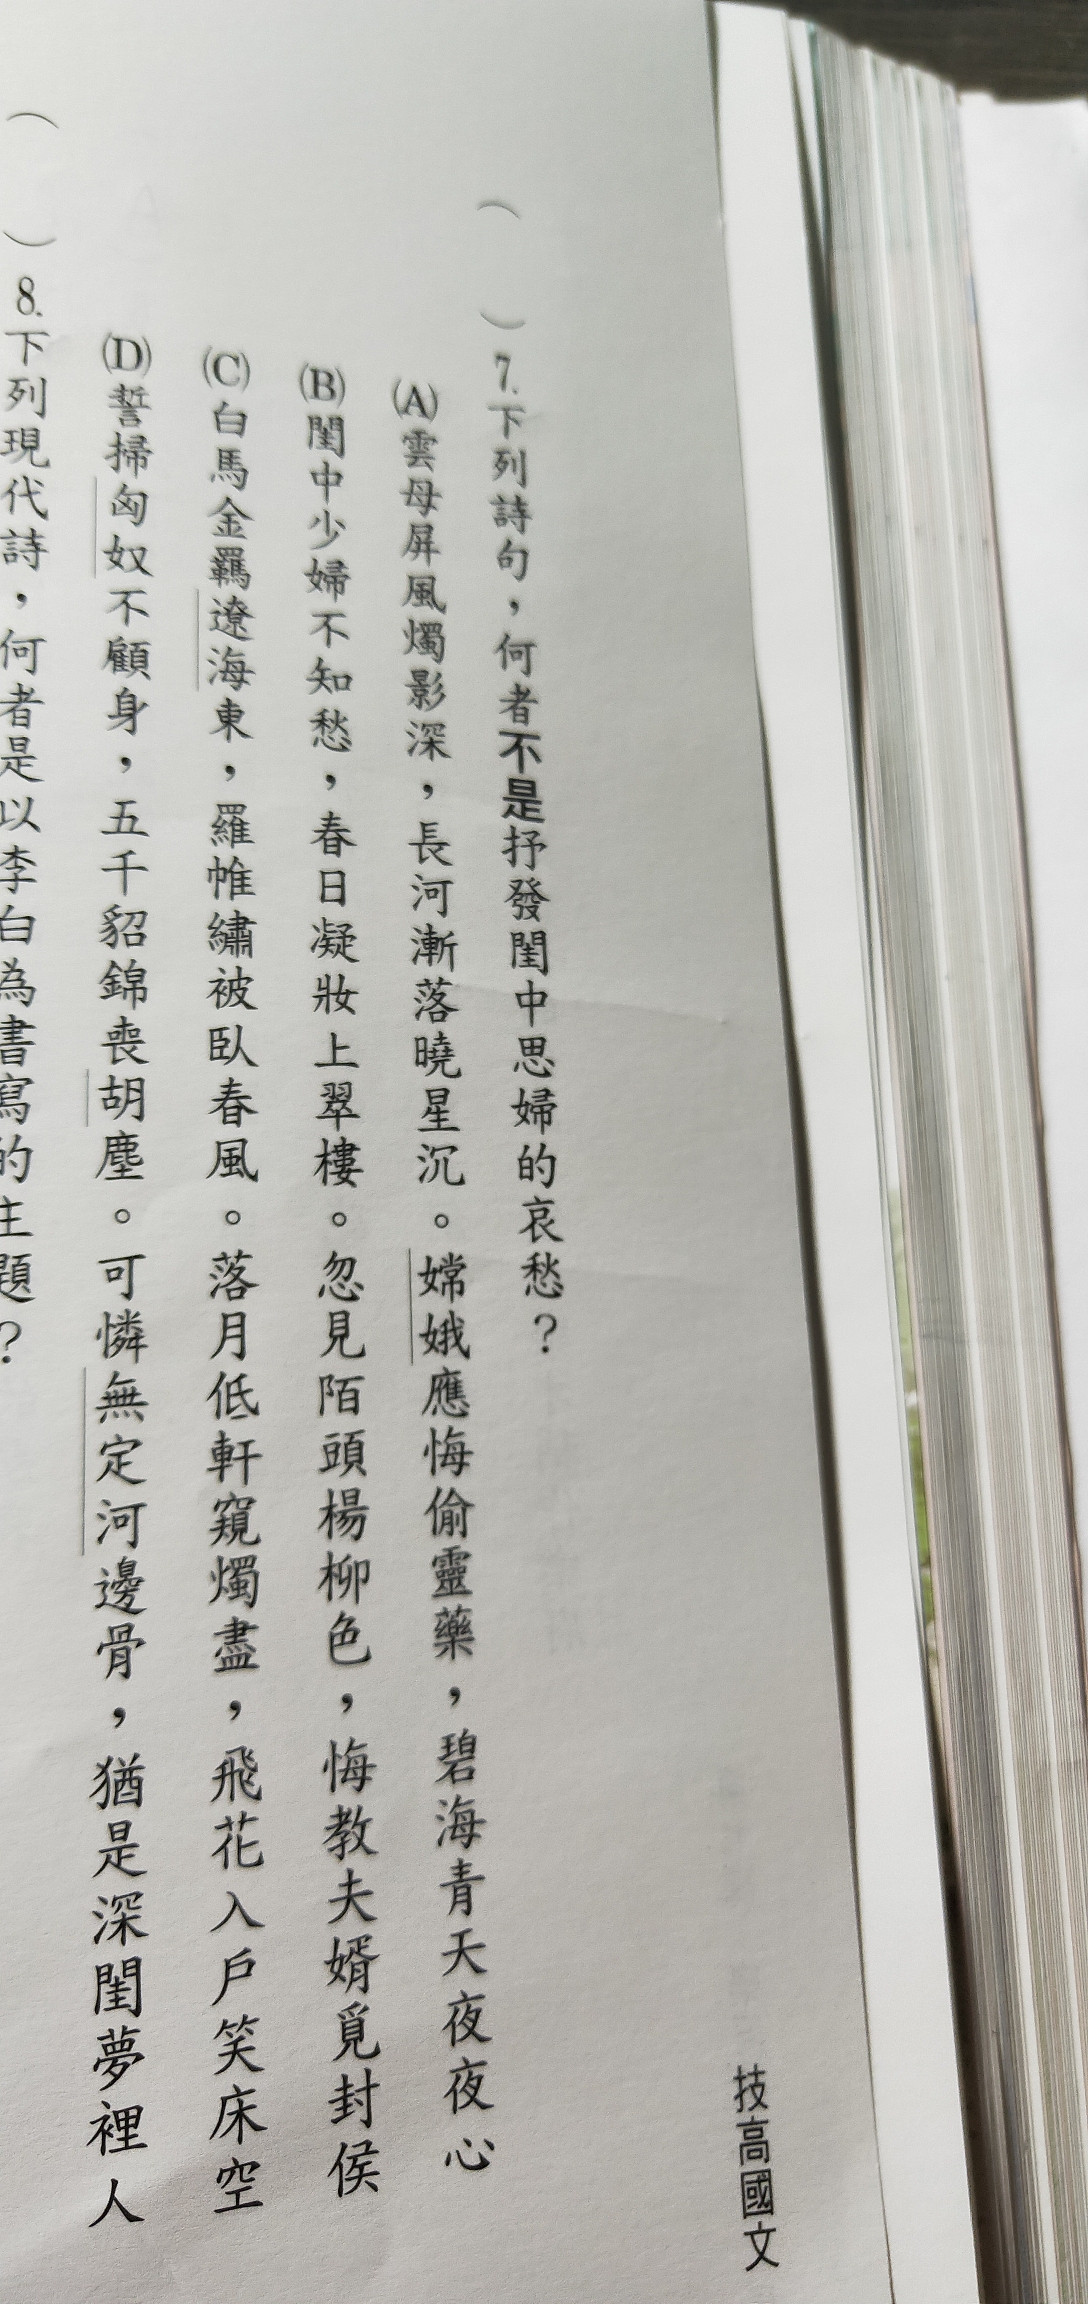 技高國文
（　）7.下列詩句，何者不是抒發閨中思婦的哀愁？
(A)雲母屏風燭影深，長河漸落曉星沉。嫦娥應悔偷靈藥，碧海青天夜夜心
(B)閨中少婦不知愁，春日凝妝上翠樓。忽見陌頭楊柳色，悔教夫婿覓封侯
(C)白馬金羈遼海東，羅帷繡被臥春風。落月低軒窺燭盡，飛花入戶笑床空
(D)誓掃匈奴不顧身，五千貂錦喪胡塵。可憐無定河邊骨，猶是深閨夢裡人
（　）8.下列現代詩，何者是以李白為書寫的主題？